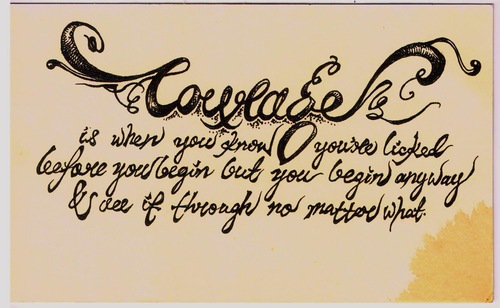 Courage
is when you know you're licked
before you begin but you begin anyway
& see it through no matter what.